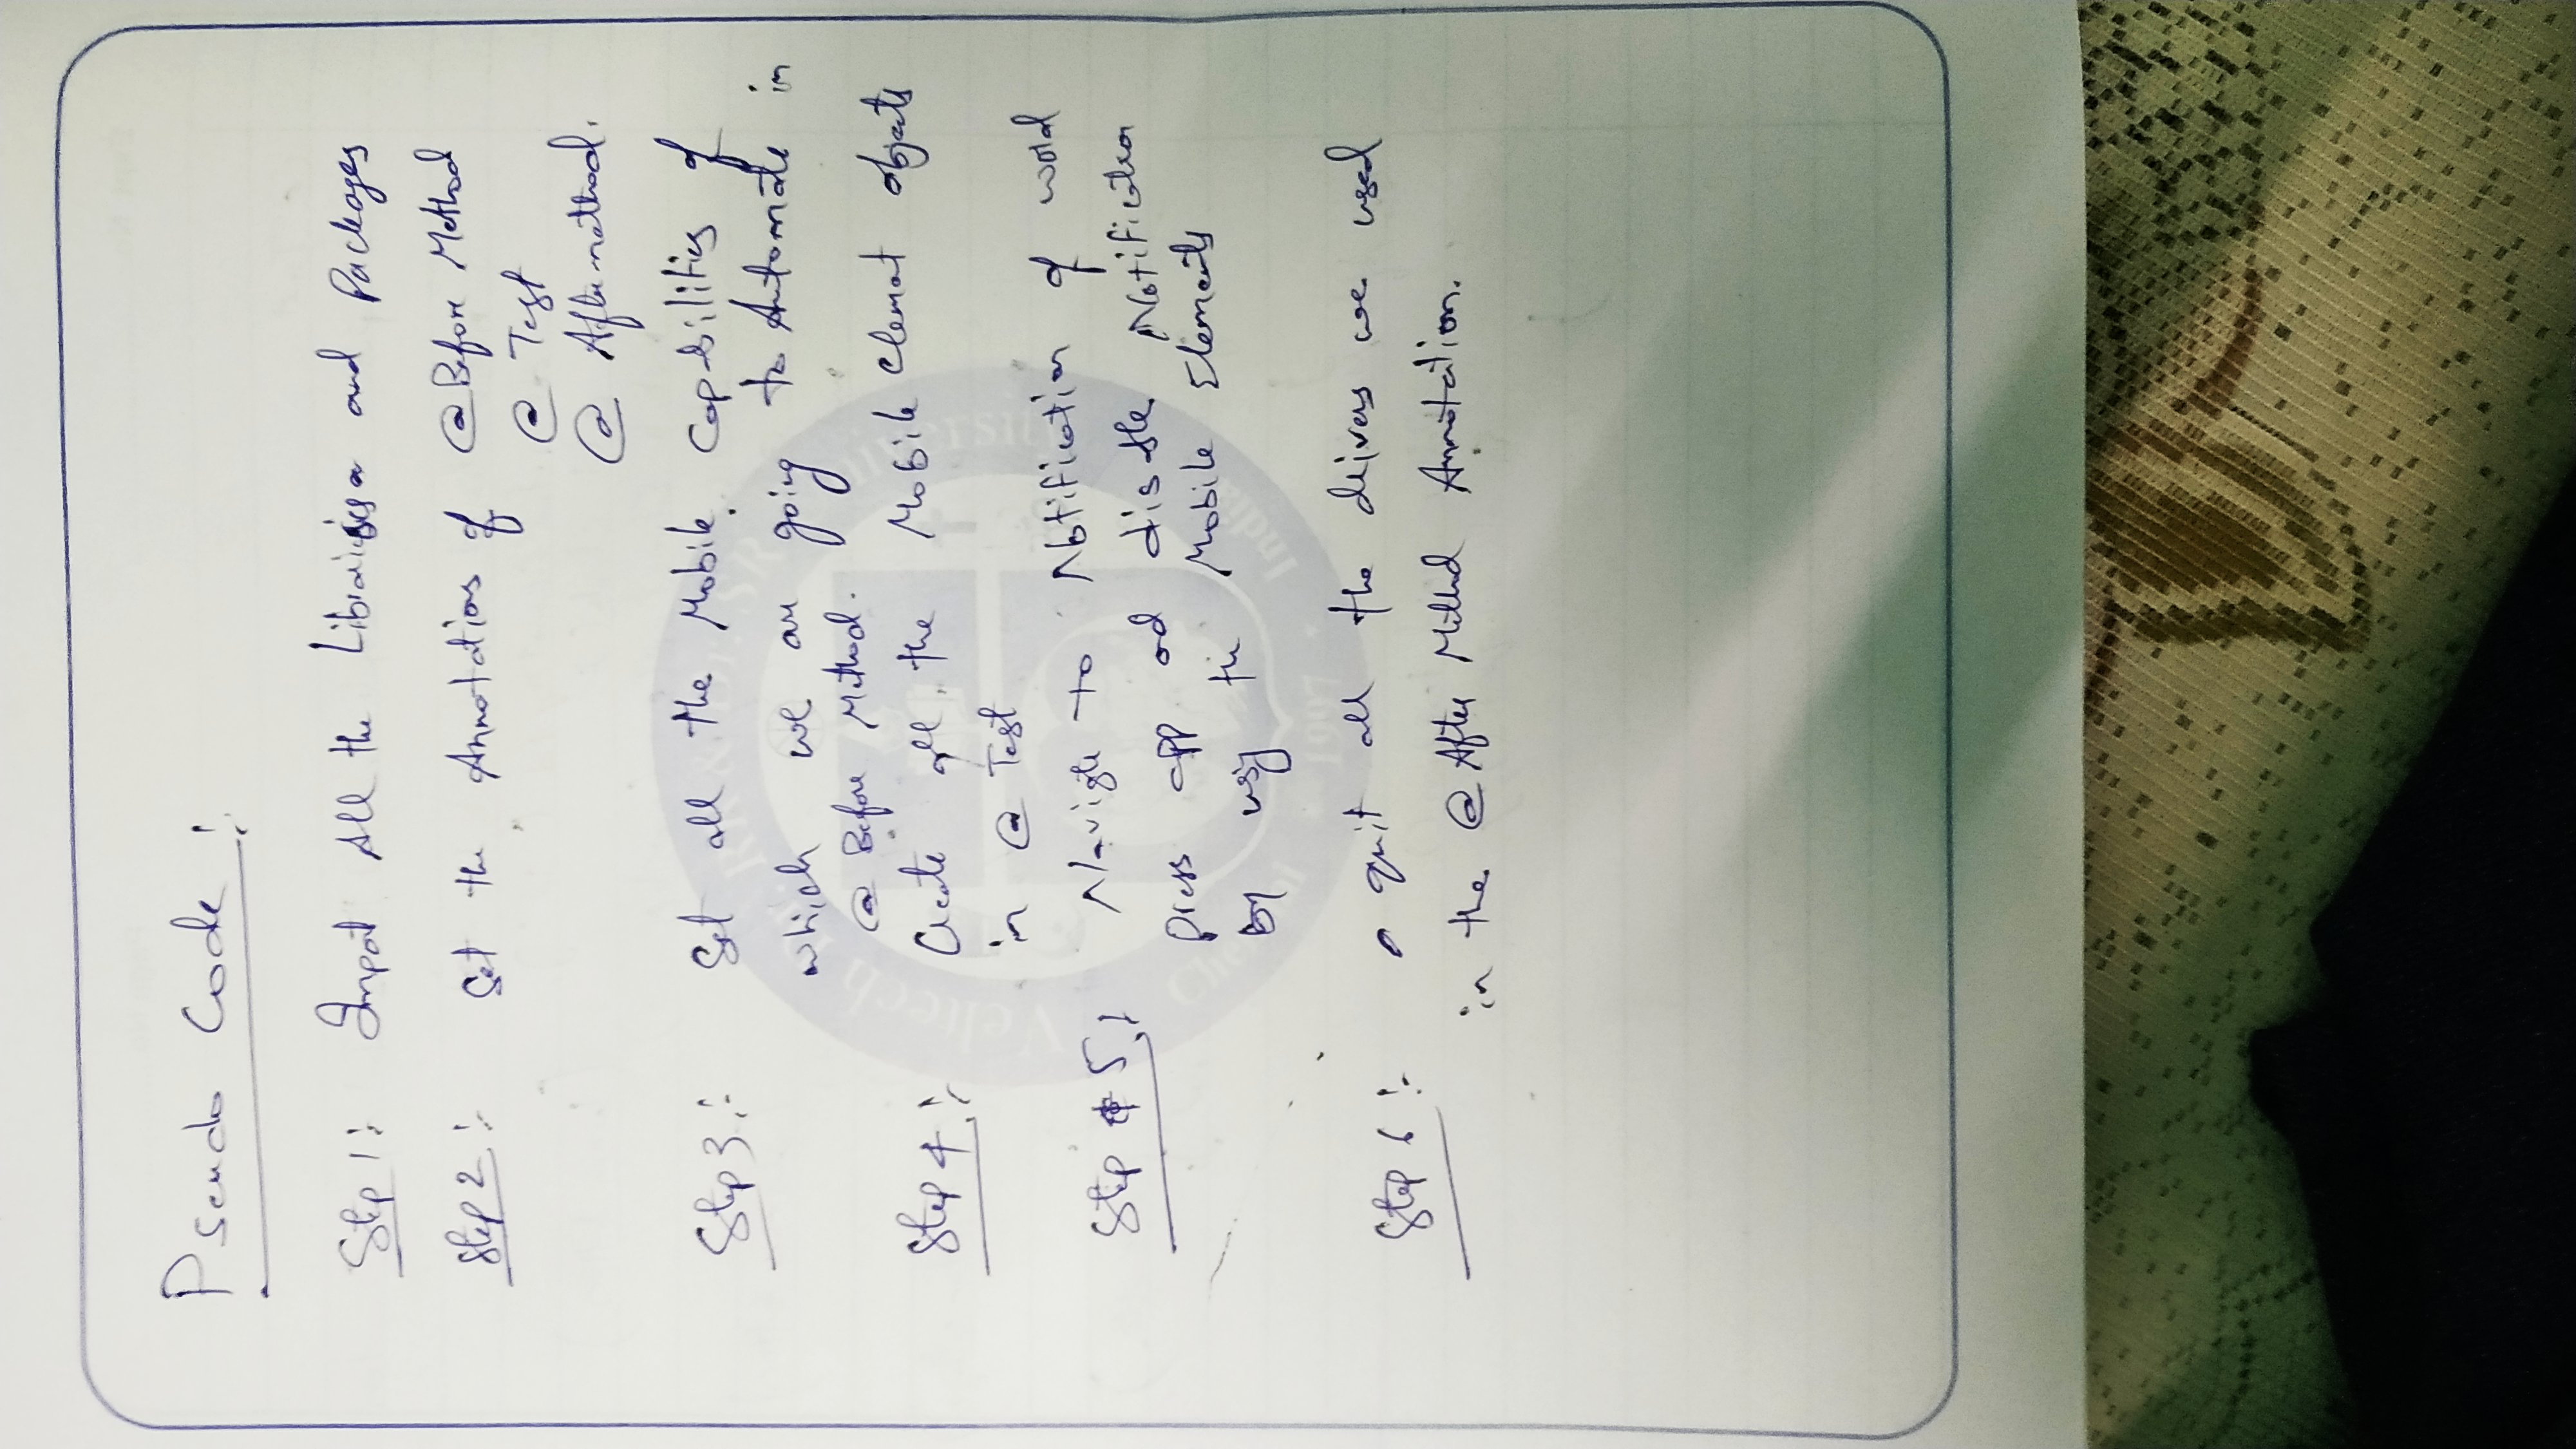 Pseudo Code :
Step 1 : Import All the Libraries and Packages
Step 2 : Set the Annotations of @Before Method
@ Test
@ Aftermethod.
Step 3 :- Set all the Mobile Capabilities of
which we are going to Automate in
@ Before Method.
Step 4 :- Create all the Mobile Element objects
in @ Test
Step 5 : Navigate to Notification of word
press app and disable Notification
by using the Mobile Elements
Step 6 :- quit all the drivers we used
in the @ After Method Annotation.
Veltech
India
1997